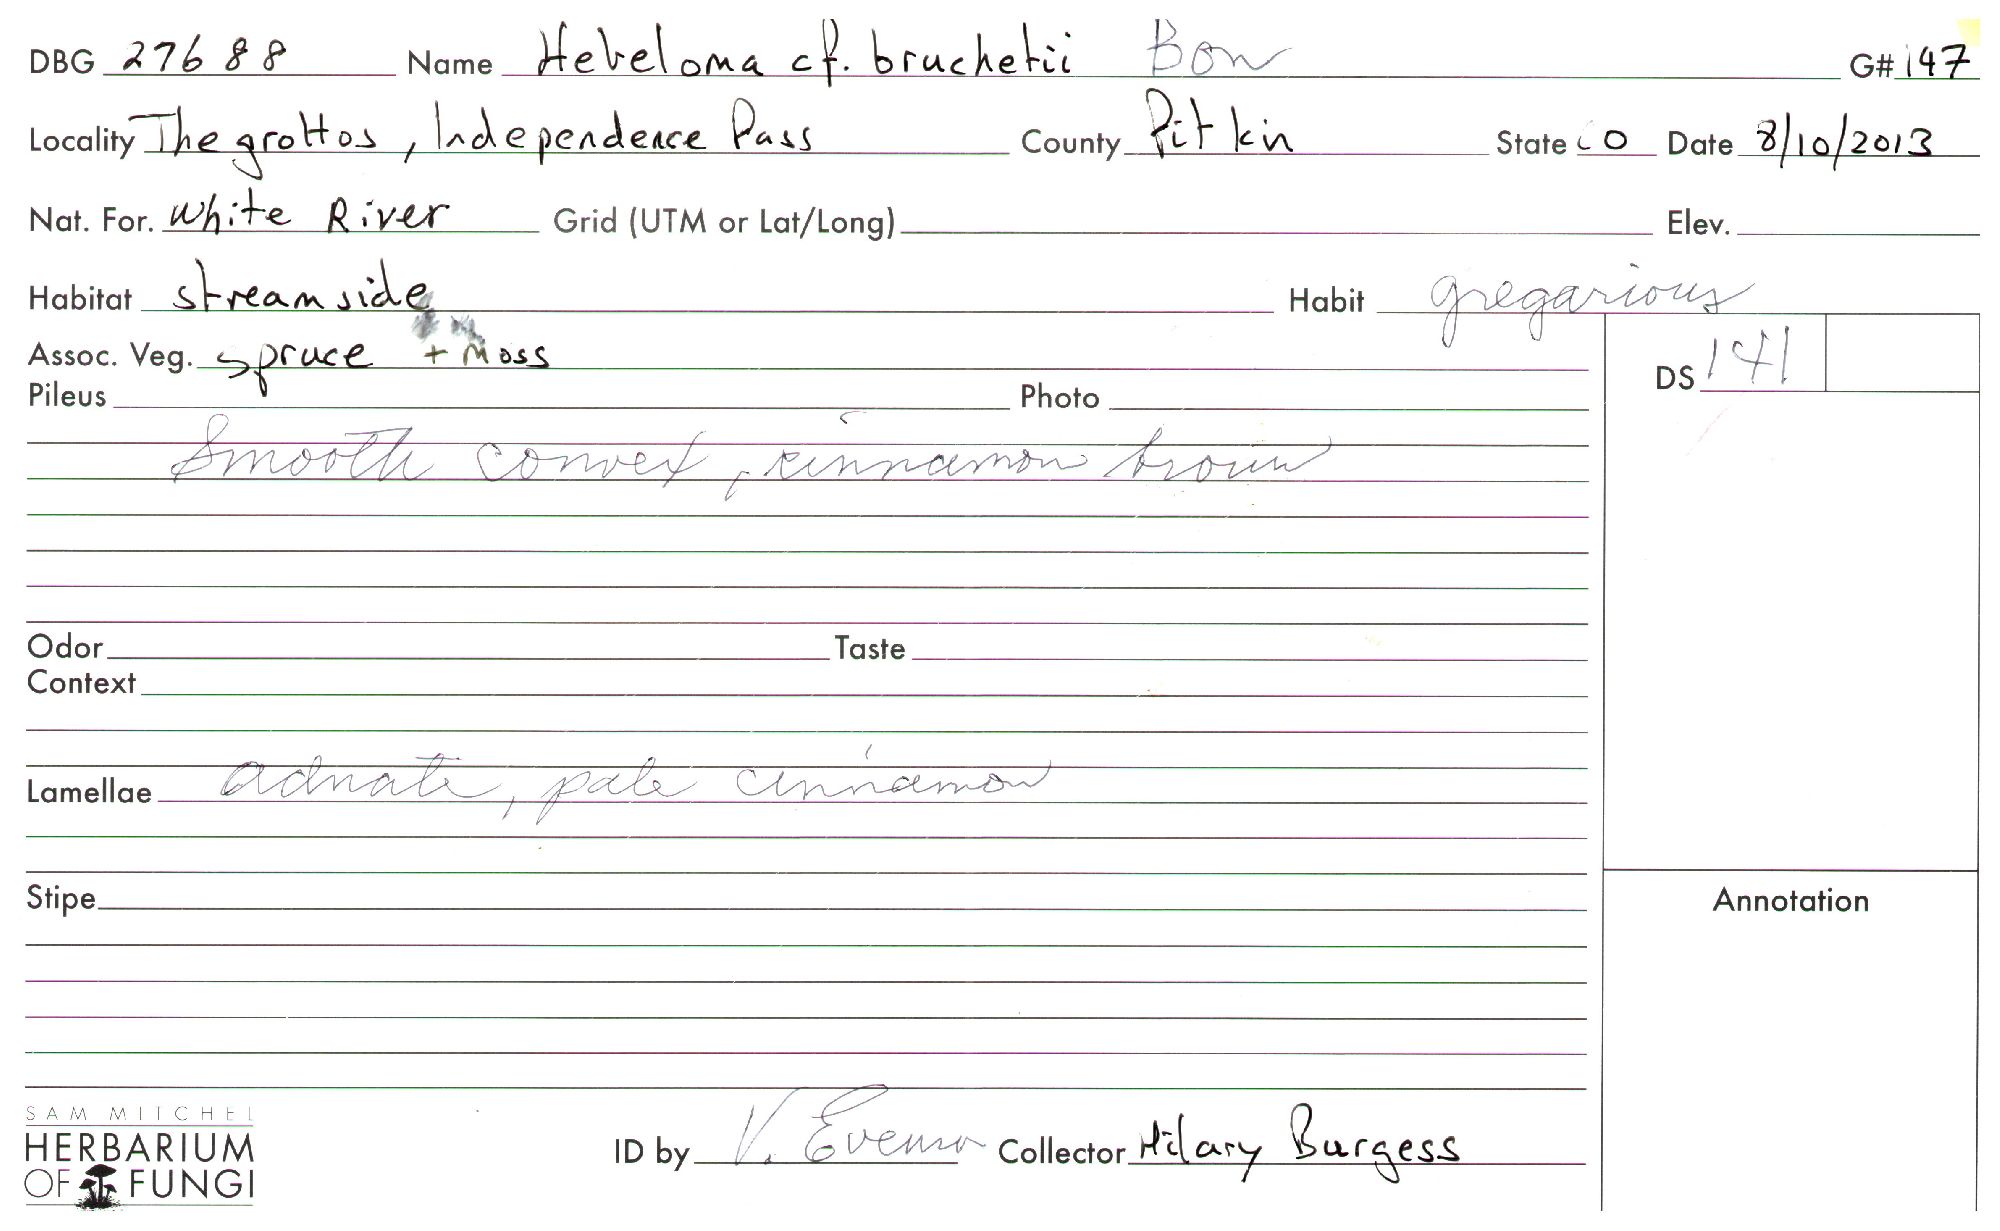 DBG 27688 Name Hebeloma cf. bruchetii Bon G# 147
Locality The grottos, Independence Pass County Pitkin State CO Date 8/10/2013
Nat. For. White River Grid (UTM or Lat/Long) Elev.
Habitat streamside Habit gregarious
Assoc. Veg. spruce + moss DS 141
Pileus Photo
Smooth convex, cinnamon brown
Odor Taste
Context
Lamellae adnate, pale cinnamon
Stipe
Annotation
SAM MITCHEL
HERBARIUM
OF FUNGI
ID by V. Evenson Collector Hilary Burgess